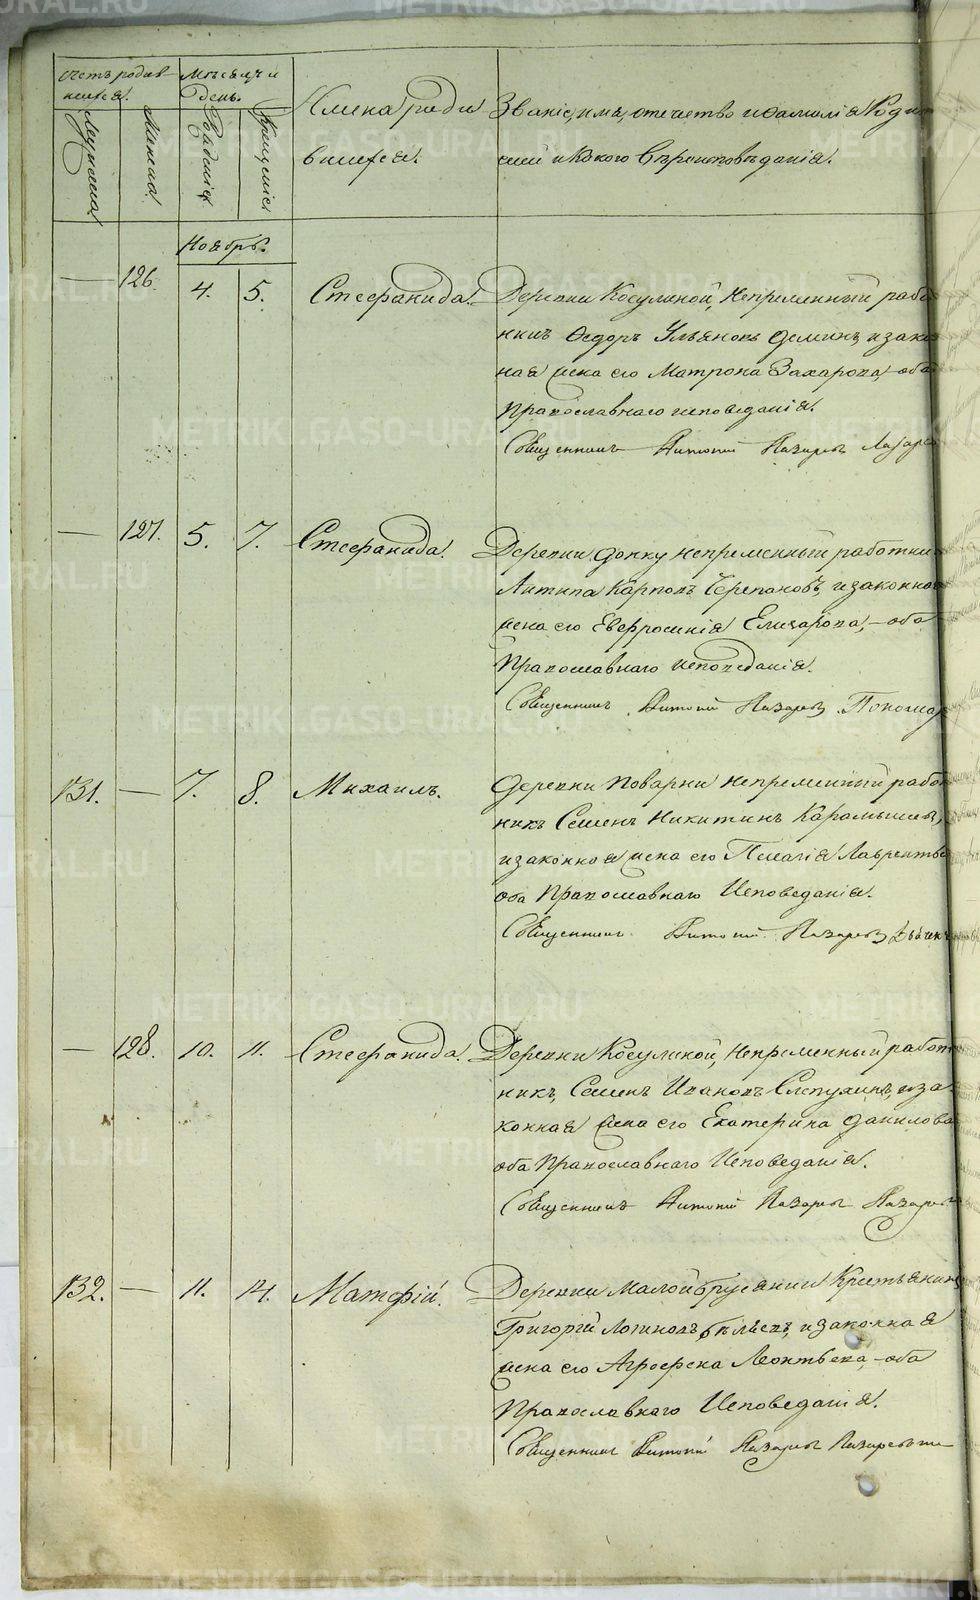 Счетъ родив-
шихся.
Мѣсяцъ и
день.
Мужеска.
Женска.
Рожденія
Крещенія
Имена роди
вшихся.
Званіе, имя, отчество и фамилія Родит
елей и Какого Вѣроисповѣданія.
Ноябрь.
— 126. 4. 5. Стефанида.
Деревни Косулиной, Непременный рабо
тникъ Ѳедоръ Ульяновъ Деминъ, и закон
ная жена его Матрона Захарова, оба
Православнаго исповеданія.
Священникъ Антоній Назаровъ
— 127. 5. 7. Стефанида.
Деревни непременный работни
Антипа Карповъ Черепановъ, и законная
жена его Евфросинія Елизарова, оба
Православнаго Исповеданія.
Священникъ Антоній Назаровъ Пономар
131. — 7. 8. Михаилъ.
Деревни Поварни непременный работ
никъ Семенъ Никитинъ Карамышевъ,
и законноя жена его Пелагія Лаврентьева
оба Православнаго Исповеданія.
Священникъ Антоній Назаровъ Дьячекъ
— 128. 10. 11. Стефанида.
Деревни Косулиной, Непременный работ
никъ, Семенъ Ивановъ Слепухинъ, и за
конная жена его Екатерина Данилова
оба Православнаго Исповеданія.
Священникъ Антоній Назаровъ
132. — 11. 14. Матфій.
Деревни Малой брусянки Крестьянинъ
Григорій Логиновъ и законная
жена его Агрофена Леонтьева, оба
Православнаго Исповеданія.
Священникъ Антоній Назаровъ
METRIKI.GASO-URAL.RU